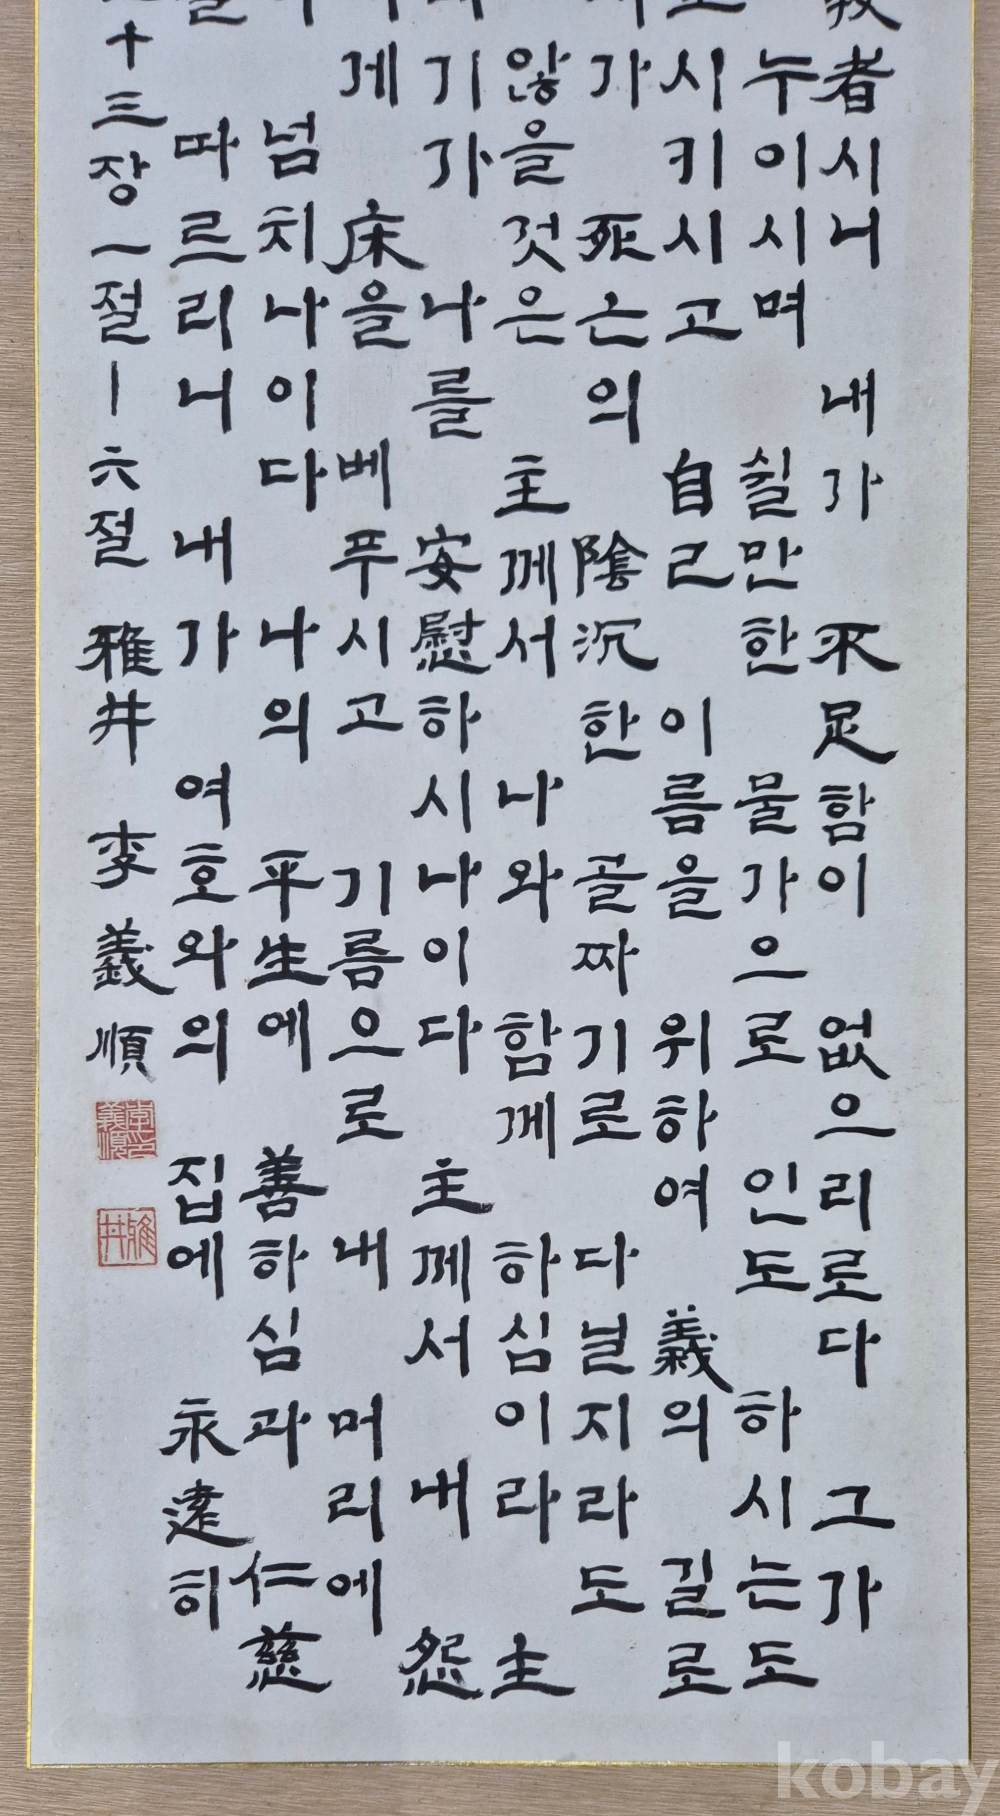 者시니 내가 不足함이 없으리로다 그가
누이시며 쉴만한 물가으로 인도 하시는도
시키시고 自己 이름을 위하여 義의 길로
가 死亡의 陰沉한 골짜기로 다닐지라도
않을 것은 主께서 나와 함께 하심이라 主
기가 나를 安慰하시나이다 主께서 내 怨
게 床을 베푸시고 기름으로 내 머리에
넘치나이다 나의 平生에 善하심과 仁慈
따르리니 내가 여호와의 집에 永遠히
十三장 一절ㅣ六절 雅井 李義順
李印義順
雅井
kobay